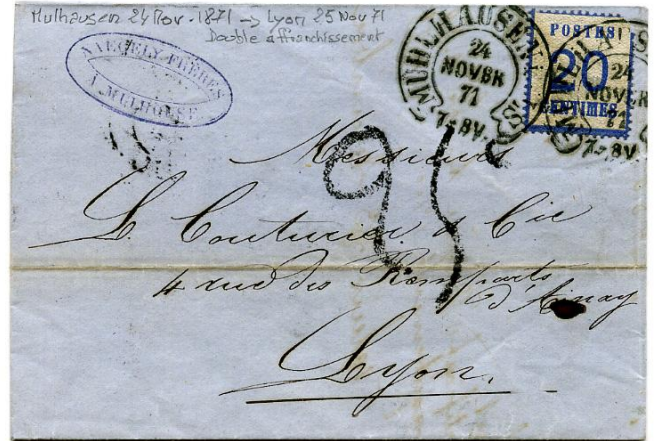 Mulhausen 24 Nov. 1871 -> Lyon 25 Nov 71
Double affranchissement
NAEGELY FRÈRES
À MULHOUSE
MÜHLHAUSEN
24
NOVBR
71
7-8V.
POSTES
20
CENTIMES
24
NOVBR
71
7-8V.
25
Messieurs
L. Couturier & Cie
4 rue des Remparts
d'Ainay
Lyon.